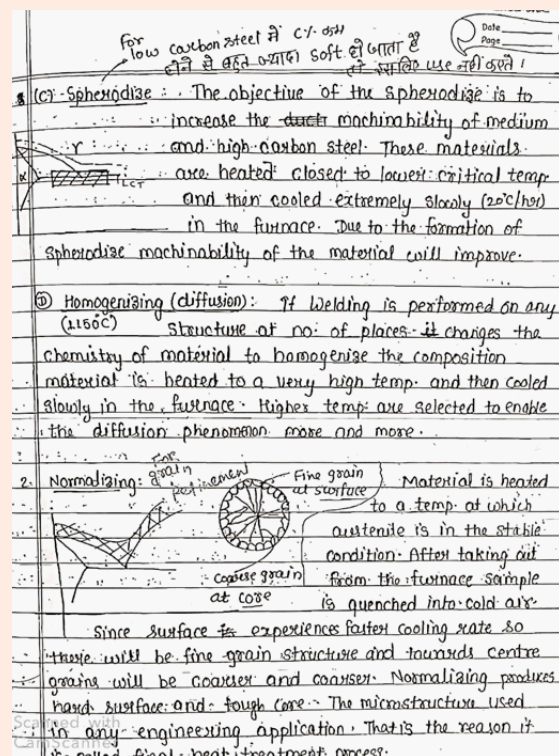 Date
Page
For low carbon steel में C% कम
होने से बहुत ज्यादा soft हो जाता है
तो इसलिए use नहीं करते।
(C) Spherodize : The objective of the spherodize is to
increase the duct machinability of medium
and high carbon steel. These materials
are heated closed to lower critical temp
and then cooled extremely slowly (20°C/hr)
in the furnace. Due to the formation of
spherodize machinability of the material will improve.
γ
α
LCT
④ Homogenizing (diffusion) : If welding is performed on any
(1150°C) structure at no. of places it changes the
chemistry of material to homogenise the composition
material is heated to a very high temp. and then cooled
slowly in the furnace. Higher temp. are selected to enable
the diffusion phenomenon more and more.
2. Normalizing : For grain refinement
Fine grain at surface
coarse grain at core
Material is heated
to a temp. at which
austenite is in the stable
condition. After taking out
from the furnace sample
is quenched into cold air.
Since surface is experiences faster cooling rate so
there will be fine grain structure and towards centre
grains will be coarser and coarser. Normalizing produces
hard surface and tough core. The microstructure used
in any engineering application. That is the reason it
is called final heat treatment process.
Scanned with
CamScanner